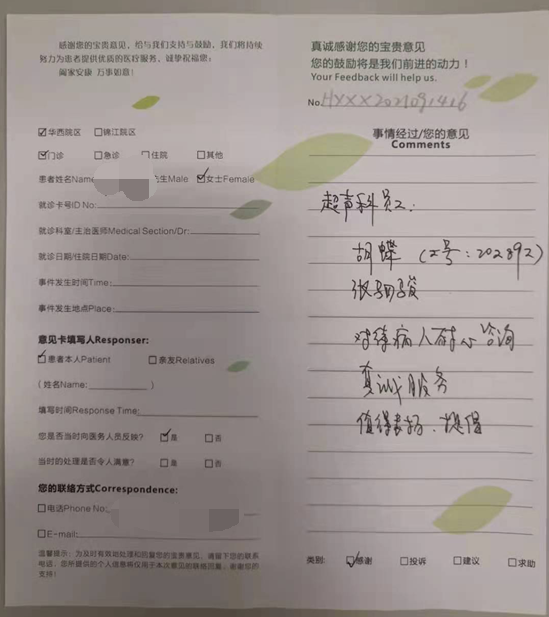 感谢您的宝贵意见,给与我们支持与鼓励,我们将持续
努力为患者提供优质的医疗服务。诚挚祝福您:
阖家安康 万事如意!
☑华西院区 ☐锦江院区
☑门诊 ☐急诊 ☐住院 ☐其他
患者姓名Name 先生Male ☑女士Female
就诊卡号ID No:
就诊科室/主治医师Medical Section/Dr:
就诊日期/住院日期Date:
事件发生时间Time:
事件发生地点Place:
意见卡填写人Responser:
☑患者本人Patient ☐亲友Relatives
(姓名Name: )
填写时间Response Time:
您是否当时向医务人员反映? ☑是 ☐否
当时的处理是否令人满意? ☐是 ☐否
您的联络方式Correspondence:
☐电话Phone No:
☐E-mail:
温馨提示:为及时有效地处理和回复您的宝贵意见,请留下您的联系
电话,您所提供的个人信息将仅用于本次意见的联络回复,谢谢您的
支持!
真诚感谢您的宝贵意见
您的鼓励将是我们前进的动力!
Your Feedback will help us.
No. HYXX2021091416
事情经过/您的意见
Comments
超声科员工:
胡蝶 (工号:202892)
张
对待病人耐心咨询
真诚服务
值得表扬、提倡
类别: ☑感谢 ☐投诉 ☐建议 ☐求助